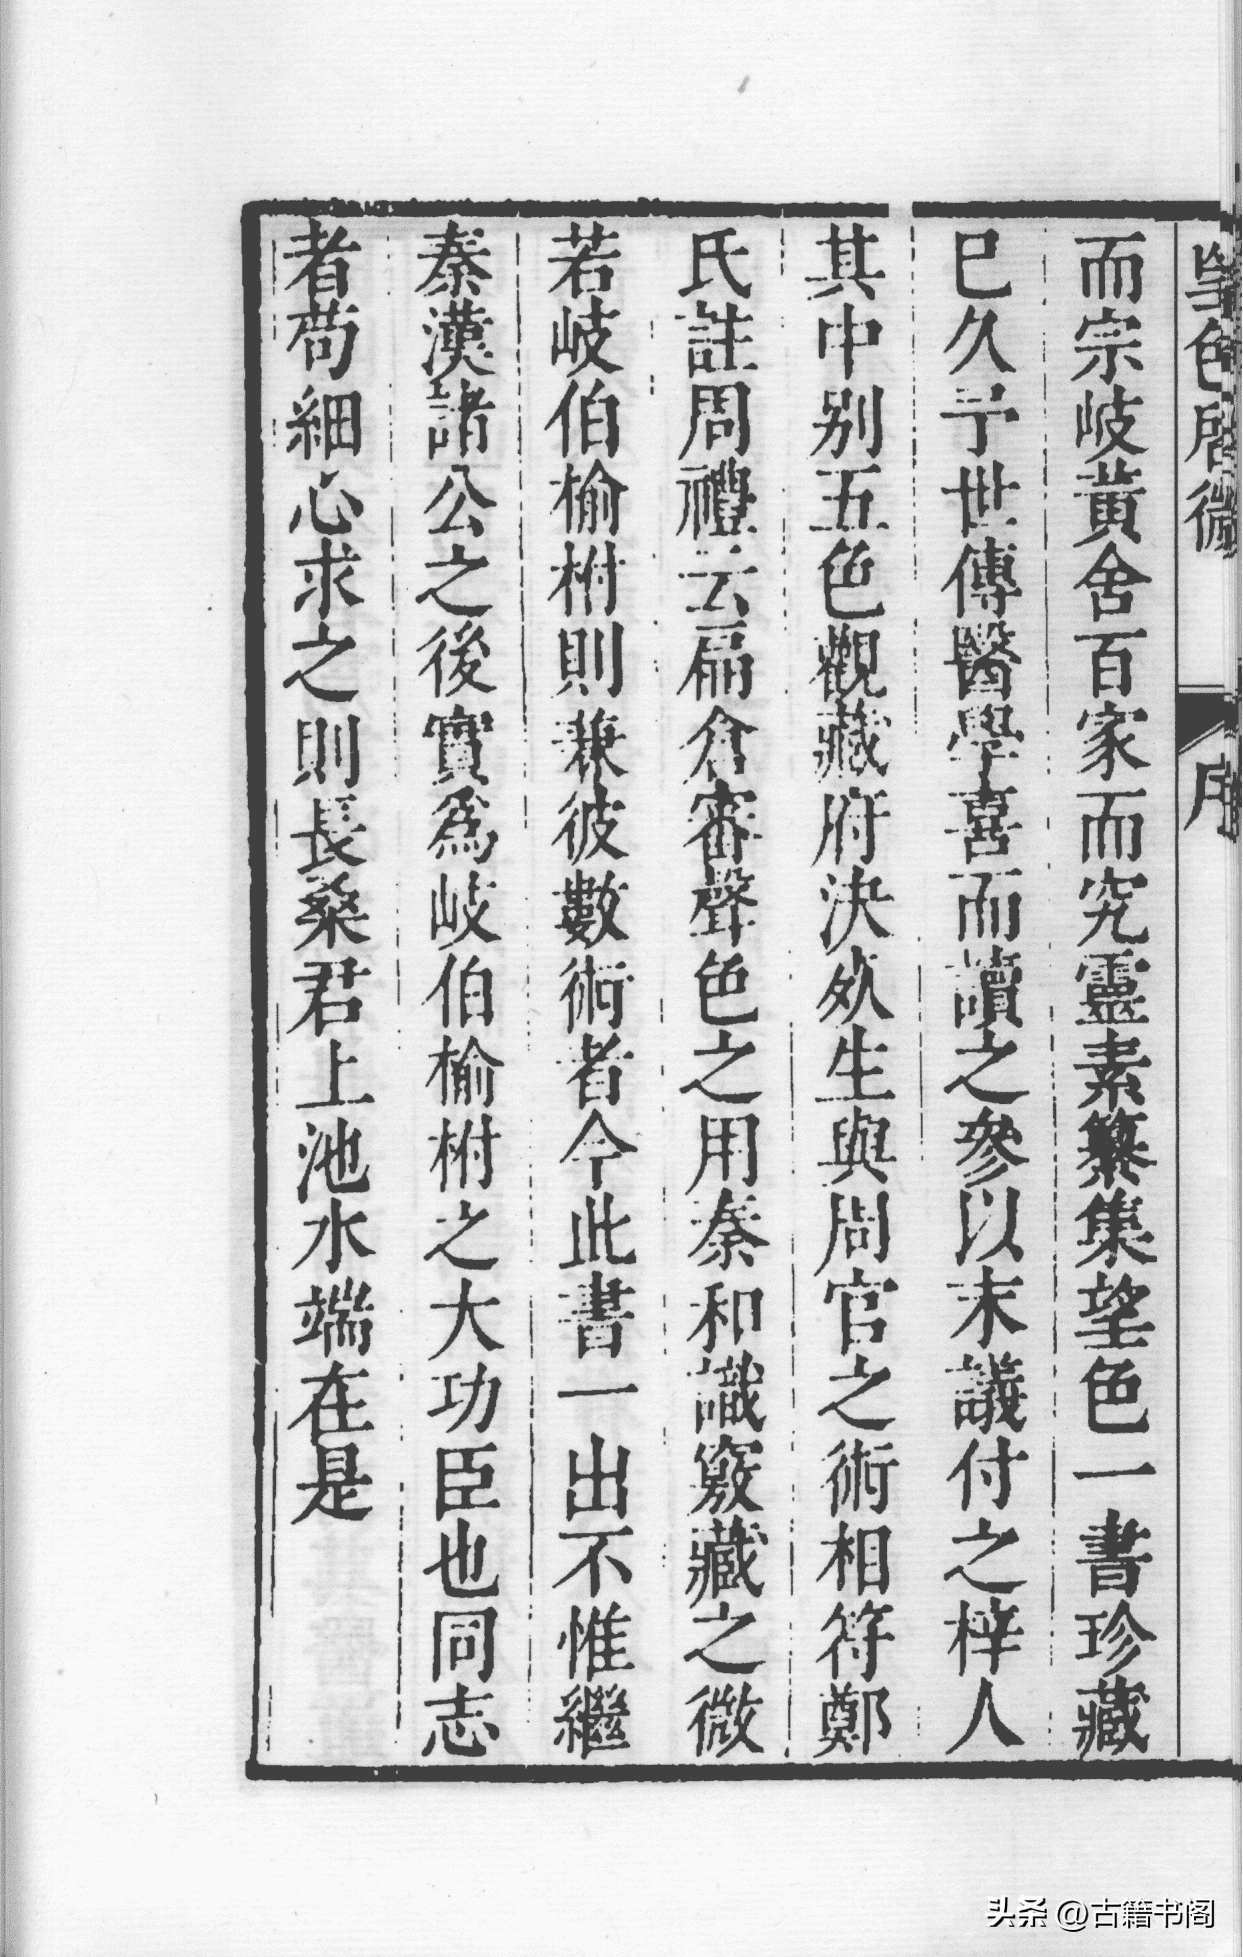 望色啓微 序
而宗岐黃舍百家而究靈素纂集望色一書珍藏
已久予世傳醫學喜而讀之參以末議付之梓人
其中别五色觀藏府決𣦸生與周官之術相符鄭
氏註周禮云扁倉審聲色之用秦和識竅藏之微
若岐伯榆柎則兼彼數術者今此書一出不惟繼
秦漢諸公之後實爲岐伯榆柎之大功臣也同志
者苟細心求之則長桑君上池水端在是
头条 @古籍书阁